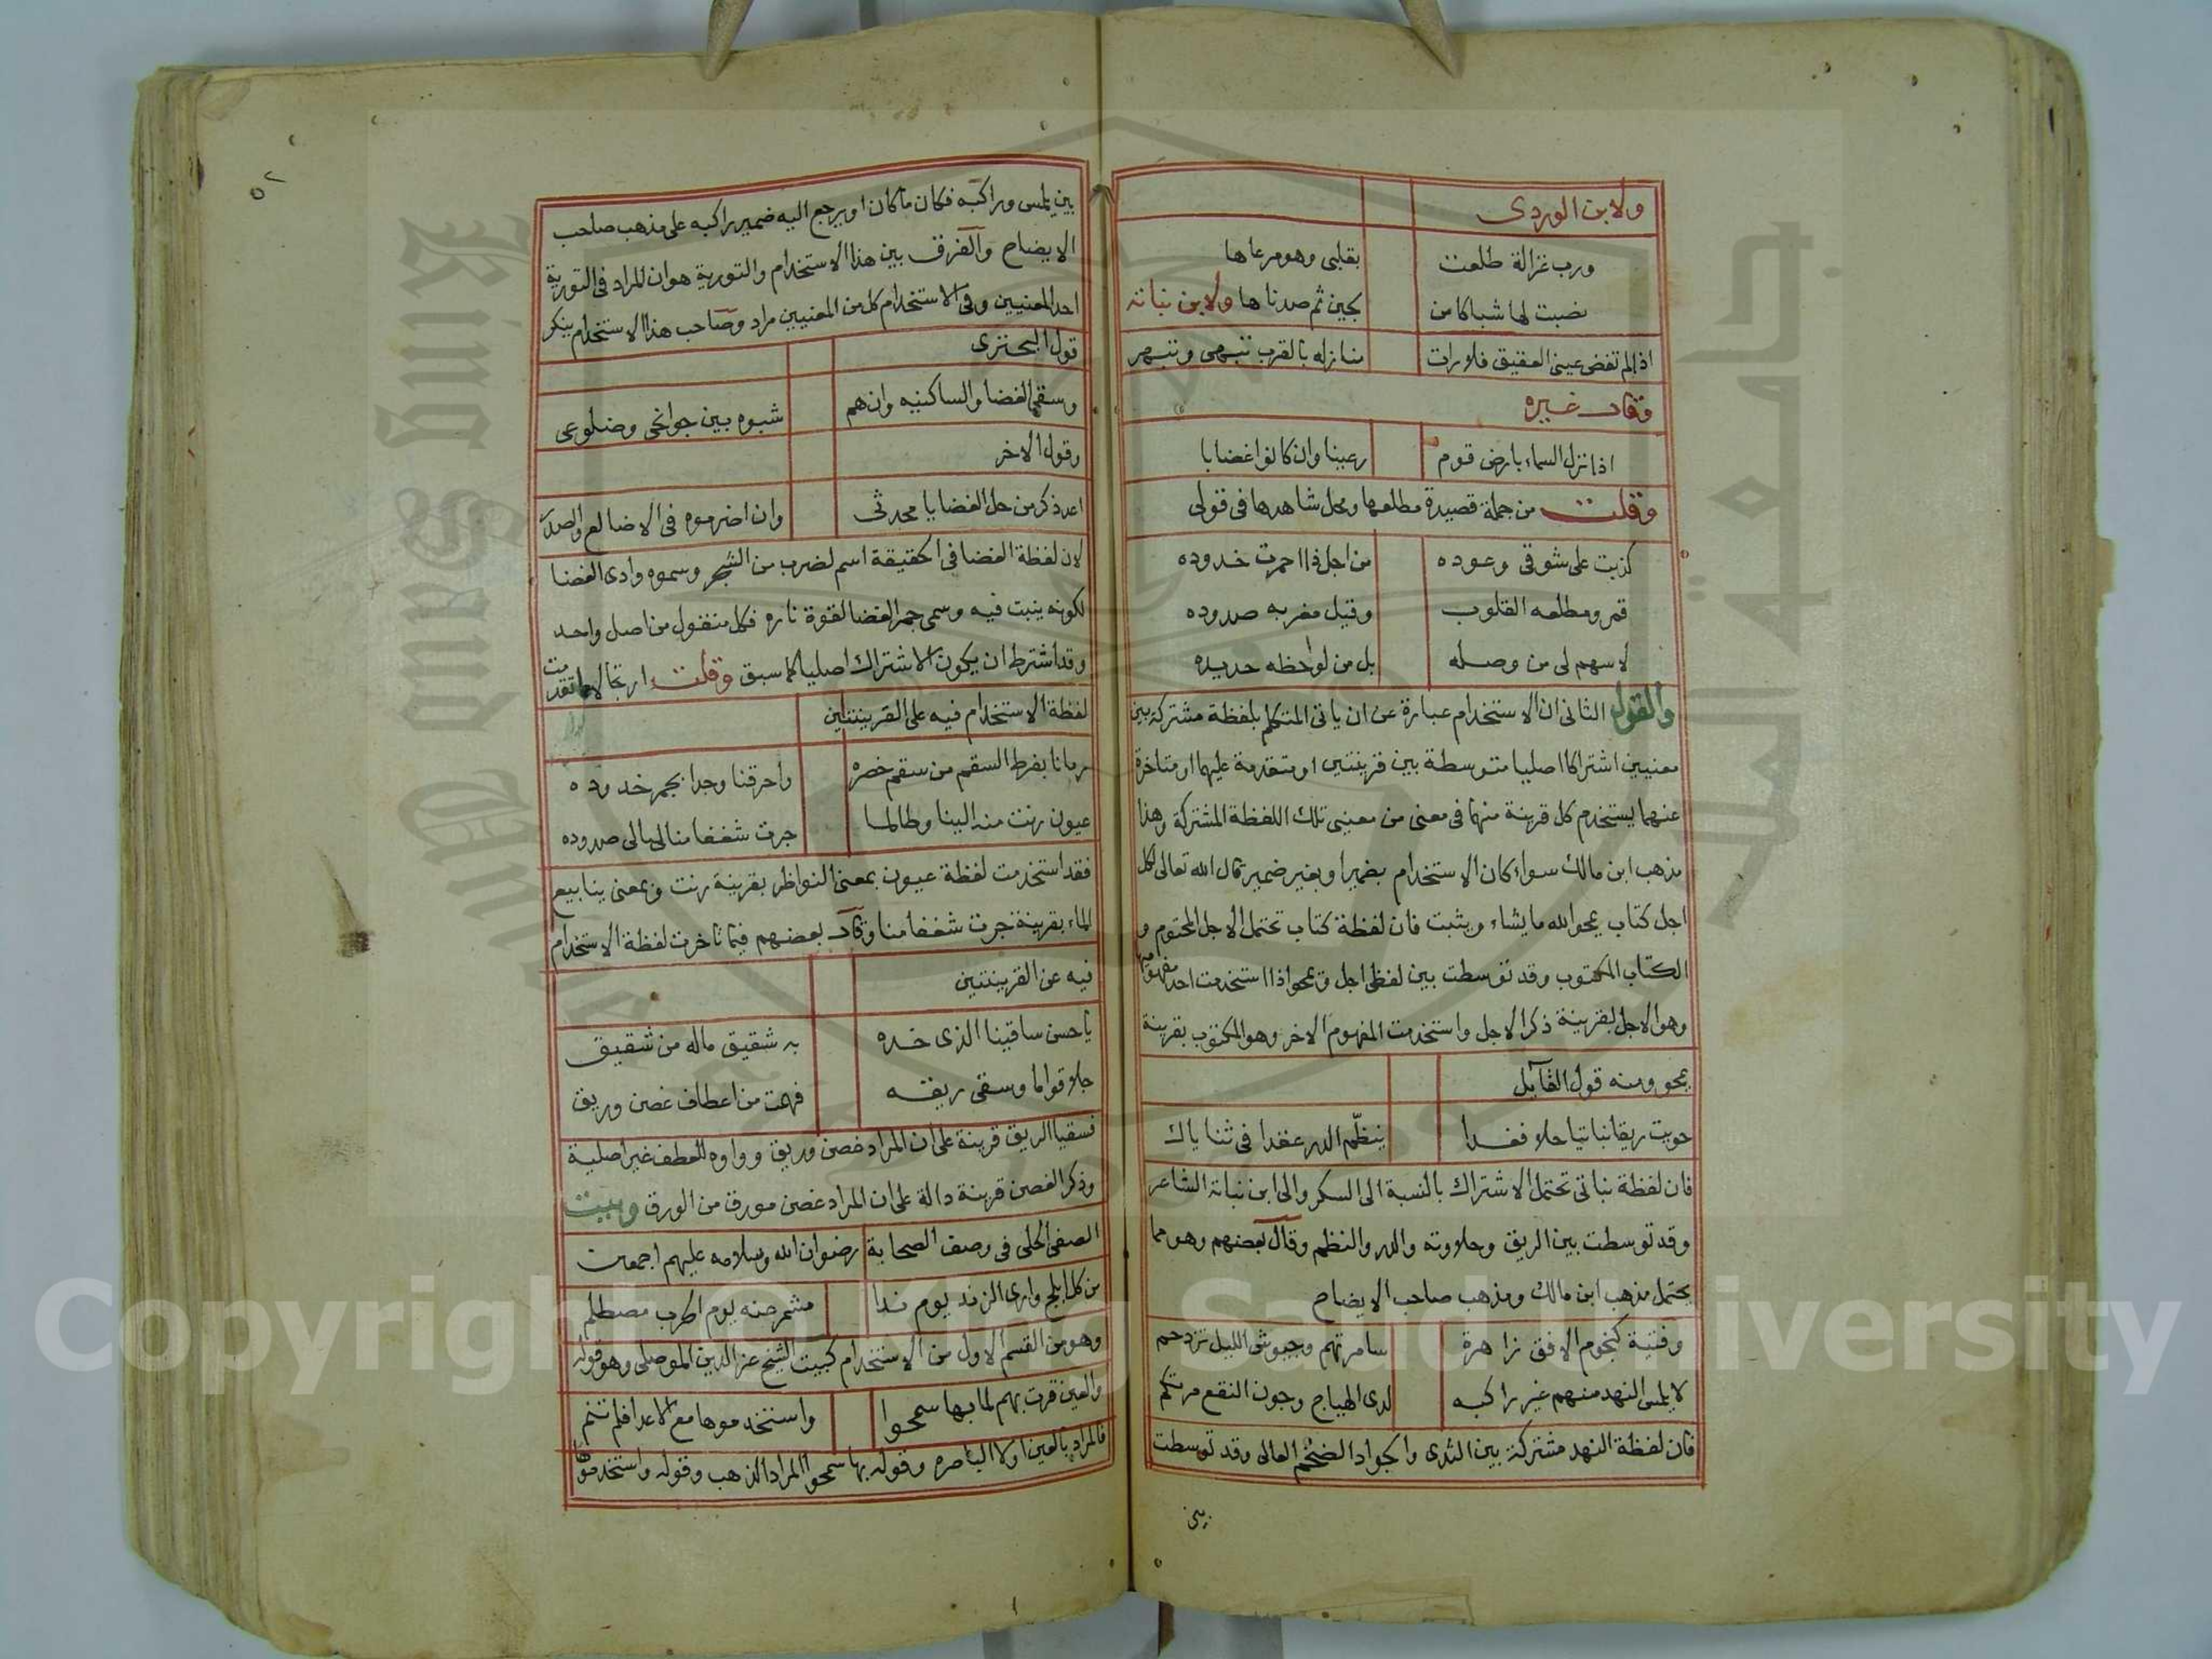 ولابن الوردى
ورب غزالة طلعت بقلبى وهو مرعاها
نصبت لها شباكا من لجين ثم صدناها ولابن نباته
اذا لم تفض عينى العقيق فلا رات منازله بالقرب تبهى وتبهر
وقال غيره
اذا نزل السماء بارض قوم رعينا وان كانوا غضابا
وقلت من جملة قصيدة مطلعها ومحل شاهدها فى قولى
كذبت على شوقى وعوده من اجل ذا احمرت خدوده
قمر ومطلعه القلوب وقيل مغربه صدوده
لا سهم لى من وصله بل من لواحظه حديده
والقول الثانى ان الاستخدام عبارة عن ان ياتى المتكلم بلفظة مشتركة بين
معنيين اشتراكا اصليا متوسطة بين قرينتين او متقدمة عليهما او متاخرة
عنهما يستخدم كل قرينة منهما فى معنى من معنيى تلك اللفظة المشتركة وهذا
مذهب ابن مالك سواء كان الاستخدام بضمير او بغير ضمير قال الله تعالى لكل
اجل كتاب يمحو الله ما يشاء ويثبت فان لفظة كتاب تحتمل الاجل المحتوم و
الكتاب المكتوب وقد توسطت بين لفظى اجل ويمحوا ذا استخدمت احد مفهومها
وهو الاجل بقرينة ذكر الاجل واستخدمت المفهوم الاخر وهو المكتوب بقرينة
يمحو ومنه قول القايل
حويت ريقا نباتيا حلا فغدا ينظّم الدر عقدا فى ثناياك
فان لفظة نباتى تحتمل الاشتراك بالنسبة الى السكر والى ابن نباته الشاعر
وقد توسطت بين الريق وحلاوته والدر والنظم وقال بعضهم وهو مما
يحتمل مذهب ابن مالك ومذهب صاحب الايضاح
وفتية كنجوم الافق زاهرة سامرتهم وجيوش الليل تزدحم
لا يلمس النهد منهم غير راكبه لدى الهياج وجون النقع مرتكم
فان لفظة النهد مشتركة بين الثدى والجواد الضخم العالى وقد توسطت
بين
٥٢
بين يلمس وراكبه فكان ما كان او يرجع اليه ضمير راكبه على مذهب صاحب
الايضاح والفرق بين هذا الاستخدام والتورية هو ان المراد فى التورية
احد المعنيين وفى الاستخدام كل من المعنيين مراد وصاحب هذا الاستخدام ينكر
قول البحترى
وسقى الغضا والساكنيه وان هم شبوه بين جوانحى وضلوعى
وقول الاخر
اعد ذكر من حل الغضا يا محدثى وان اضرموه فى الاضالع والصدر
لان لفظة الغضا فى الحقيقة اسم لضرب من الشجر وسموه وادى الغضا
لكونه ينبت فيه وسمى جمر الغضا لقوة ناره فكل منقول من اصل واحد
وقد اشترط ان يكون الاشتراك اصليا كما سبق وقلت ارتجالا فيما تقدمت
لفظة الاستخدام فيه على القرينتين
رمانا بفرط السقم من سقم خصره واحرقنا وجدا بجمر خدوده
عيون رنت منه الينا وطالما جرت شغفا منا ليالى صدوده
فقد استخدمت لفظة عيون بمعنى النواظر بقرينة رنت وبمعنى ينابيع
الماء بقرينة جرت شغفا منا وقال بعضهم فيما تاخرت لفظة الاستخدام
فيه عن القرينتين
يا حسن ساقينا الذى خده به شقيق ماله من شقيق
جلا قواما وسقى ريقه فهمت من اعطاف غصن وريق
فسقيا الريق قرينة على ان المراد غصن وريق وواوه للعطف غير اصلية
وذكر الغصن قرينة دالة على ان المراد غصن مورق من الورق وبيت
الصفى الحلى فى وصف الصحابة رضوان الله وسلامه عليهم اجمعين
من كل ابلج وارى الزند يوم ندا مشمر عنه يوم الحرب مصطلم
وهو من القسم الاول من الاستخدام كبيت الشيخ عز الدين الموصلى وهو قوله
والعين قرت بهم لما بها سمحوا واستخدموها مع الاعدا فلم تنم
فالمراد بالعين اولا الباصره وقوله بها سمحوا المراد الذهب وقوله واستخدموها
Copyright © King Saud University